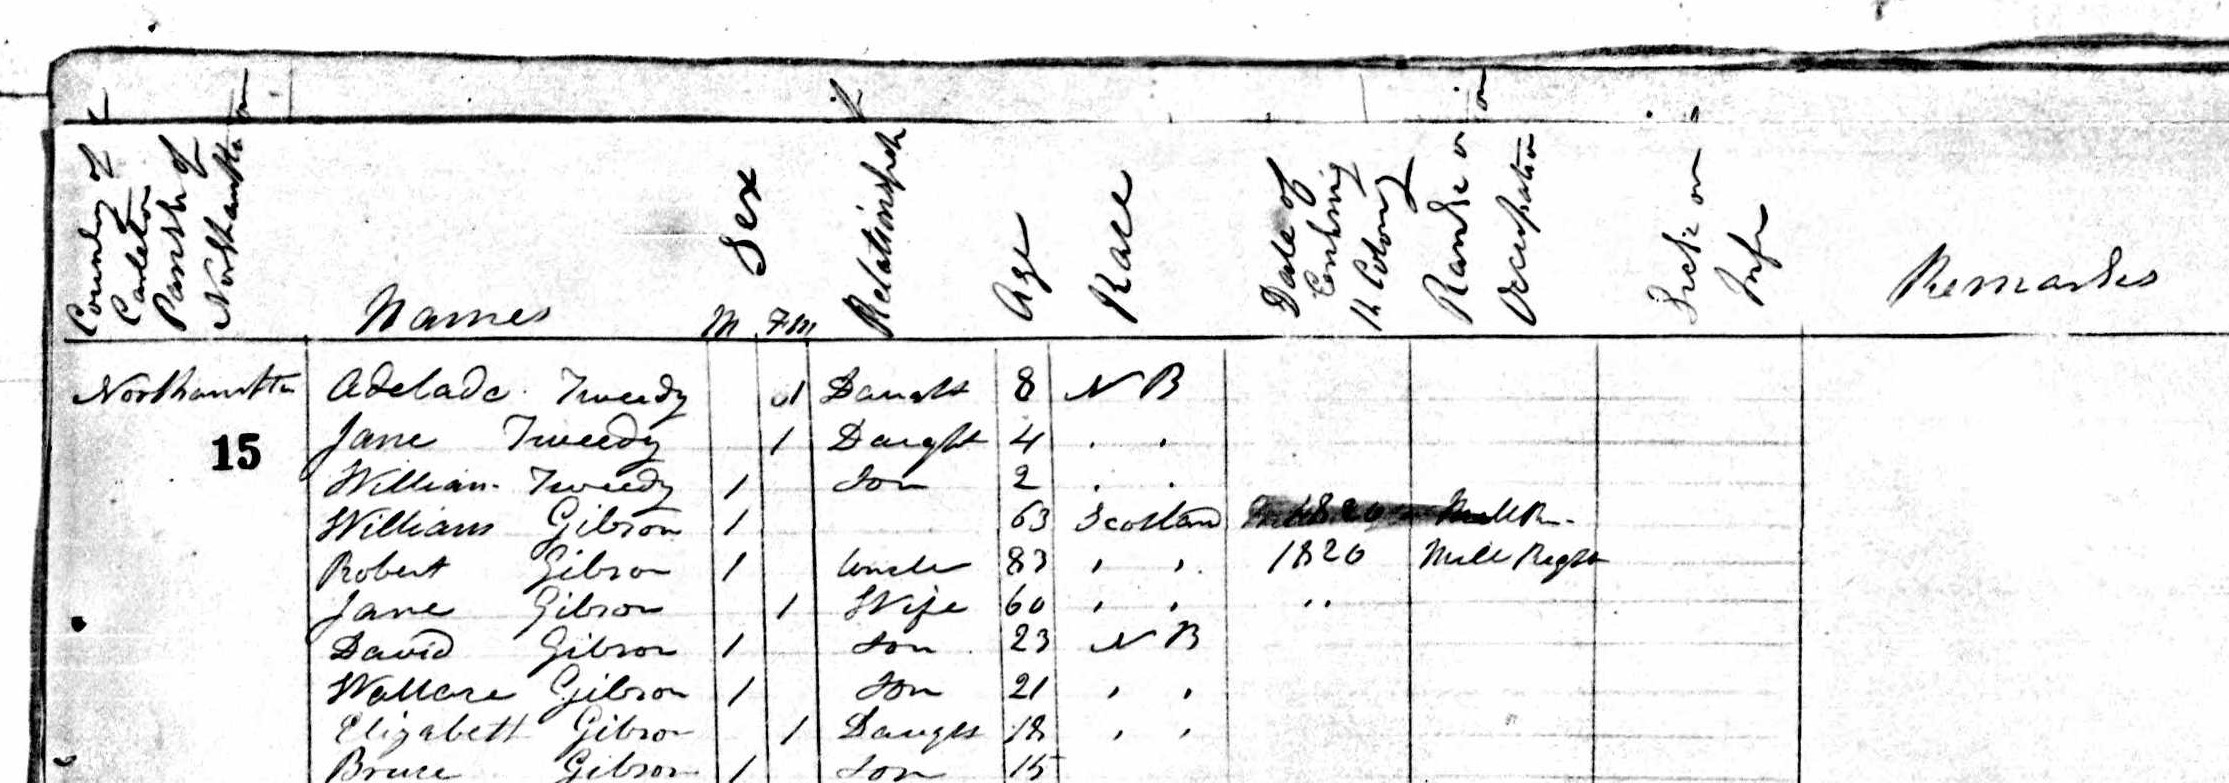 County of Carleton Parish of Northampton
Names
Sex
M Fm
Relationship
Age
Race
Date of Entering th Colony
Rank or Occupation
Sick or Inf
Remarks
Northampton Adelade Tweedy 1 Daught 8 N B
15
Jane Tweedy 1 Daught 4 " "
William Tweedy 1 Son 2 " "
William Gibson 1 63 Scotland 1820
Robert Gibson 1 Uncle 83 " " 1820 Mill Right
Jane Gibson 1 Wife 60 " " "
David Gibson 1 Son 23 N B
Wallace Gibson 1 Son 21 " "
Elizabett Gibson 1 Daught 18 " "
Bruce Gibson 1 Son 15